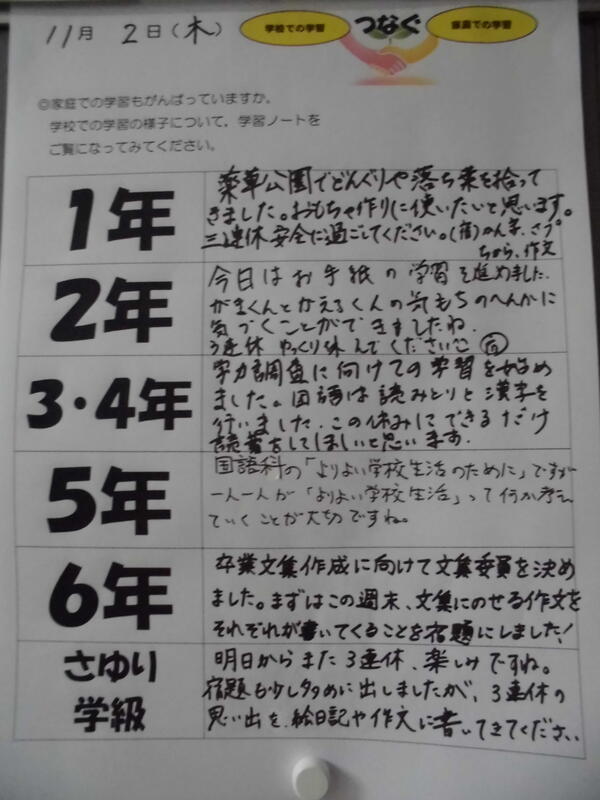 11月 2日(木)
学校での学習 つなぐ 家庭での学習
◎家庭での学習もがんばっていますか。
学校での学習の様子について、学習ノートを
ご覧になってみてください。
1年
薬草公園でどんぐりや落ち葉を拾って
きました。おもちゃ作りに使いたいと思います。
三連休安全に過ごしてください。(宿)かん字、さプ
ちから、作文
2年
今日はお手紙の学習を進めました。
がまくんとかえるくんの気もちのへんかに
気づくことができましたね。
3連休 ゆっくり休んでください
3・4年
学力調査に向けての学習を始め
ました。国語は読みとりと漢字を
行いました。この休みにできるだけ
読書をしてほしいと思います。
5年
国語科の「よりよい学校生活のために」ですが
一人一人が「よりよい学校生活」って何か考え
ていくことが大切ですね。
6年
卒業文集作成に向けて文集委員を決め
ました。まずはこの週末、文集にのせる作文を
それぞれが書いてくることを宿題にしました!
さゆり
学級
明日からまた3連休、楽しみですね。
宿題も少し多めに出しましたが、3連休の
思い出を、絵日記や作文に書いてきてください。